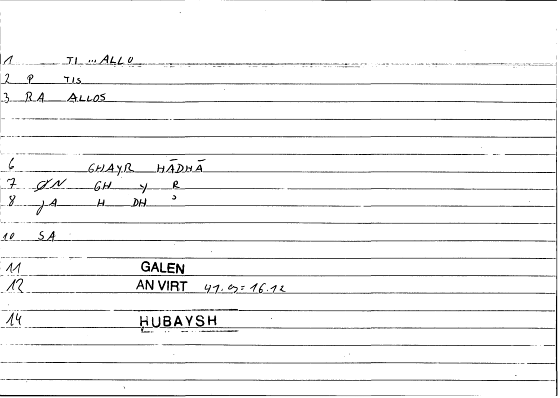 1 TI ... ALLO
2 P TIS
3 RA ALLOS
6 GHAYR HĀDHĀ
7 ØN GH Y R
8 JA H DH ʾ
10 SA
11 GALEN
12 AN VIRT = 16.12
14 HUBAYSH